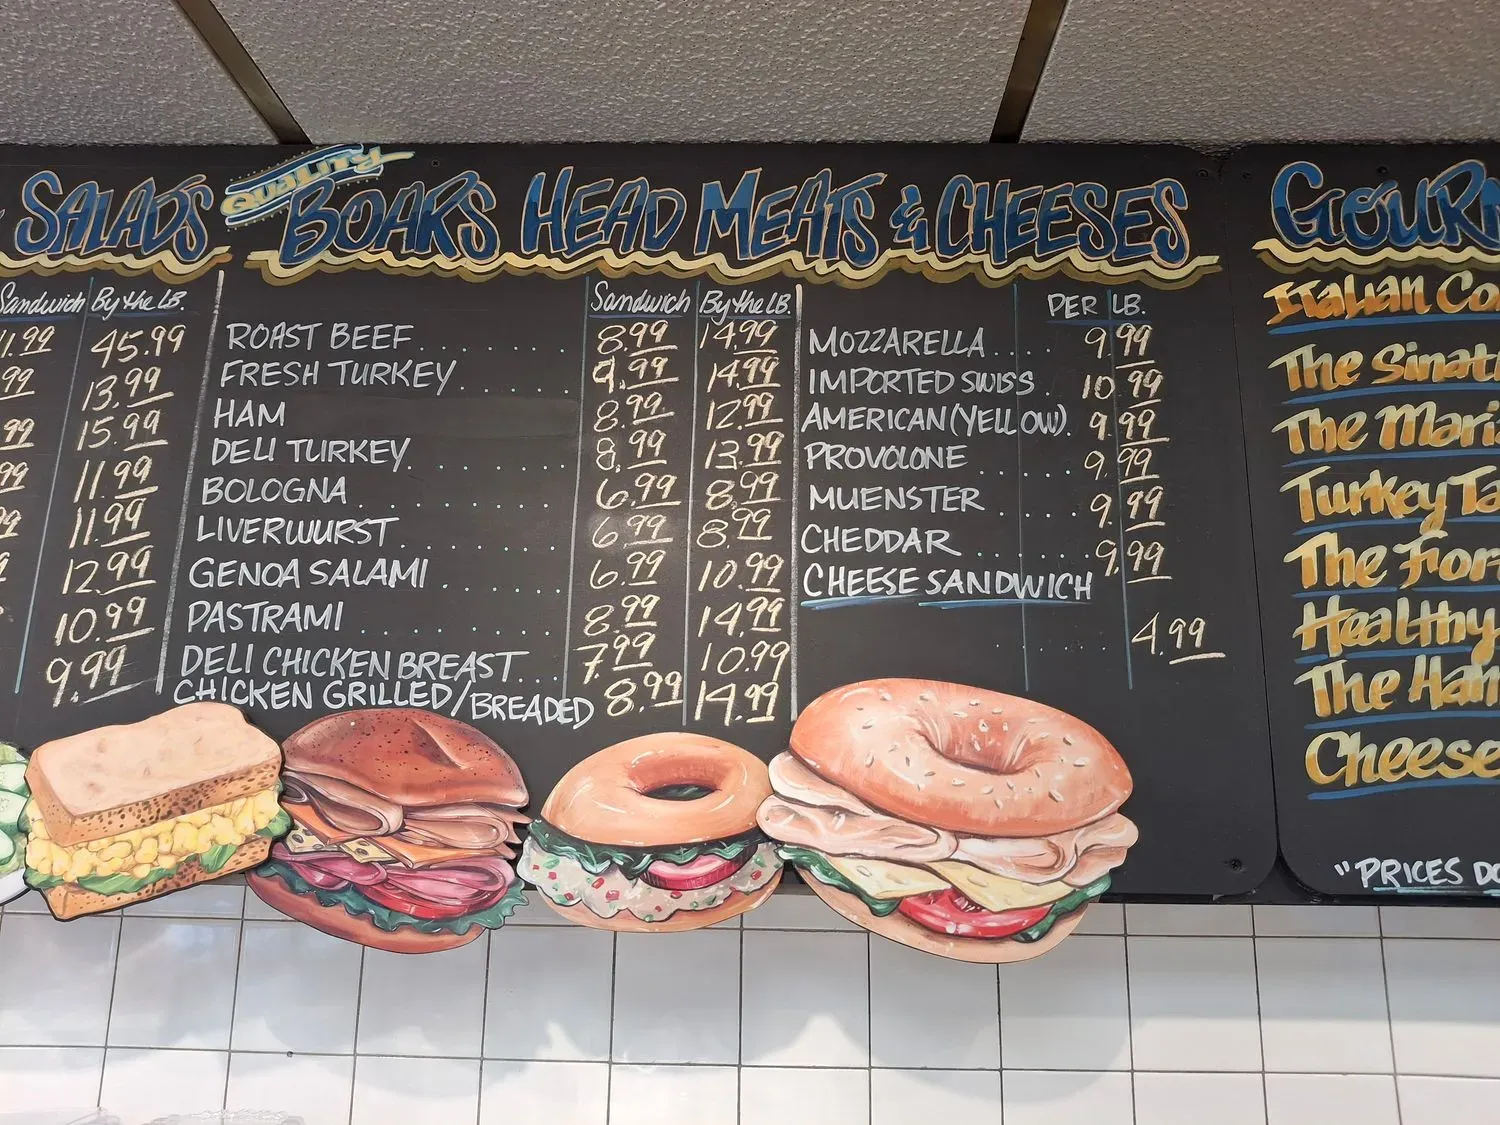 SALADS
Sandwich By the LB.
45.99
.99 13.99
.99 15.99
.99 11.99
11.99
12.99
10.99
9.99
QUALITY
BOARS HEAD MEATS & CHEESES
Sandwich By the LB.
ROAST BEEF 8.99 14.99
FRESH TURKEY 9.99 14.99
HAM 8.99 12.99
DELI TURKEY 8.99 13.99
BOLOGNA 6.99 8.99
LIVERWURST 6.99 8.99
GENOA SALAMI 6.99 10.99
PASTRAMI 8.99 14.99
DELI CHICKEN BREAST 7.99 10.99
CHICKEN GRILLED/BREADED 8.99 14.99
PER LB.
MOZZARELLA 9.99
IMPORTED SWISS 10.99
AMERICAN (YELLOW) 9.99
PROVOLONE 9.99
MUENSTER 9.99
CHEDDAR 9.99
CHEESE SANDWICH
4.99
GOURM
Italian Co
The Sinat
The Mari
Turkey Ta
The For
Healthy
The Ham
Cheese
"PRICES DO